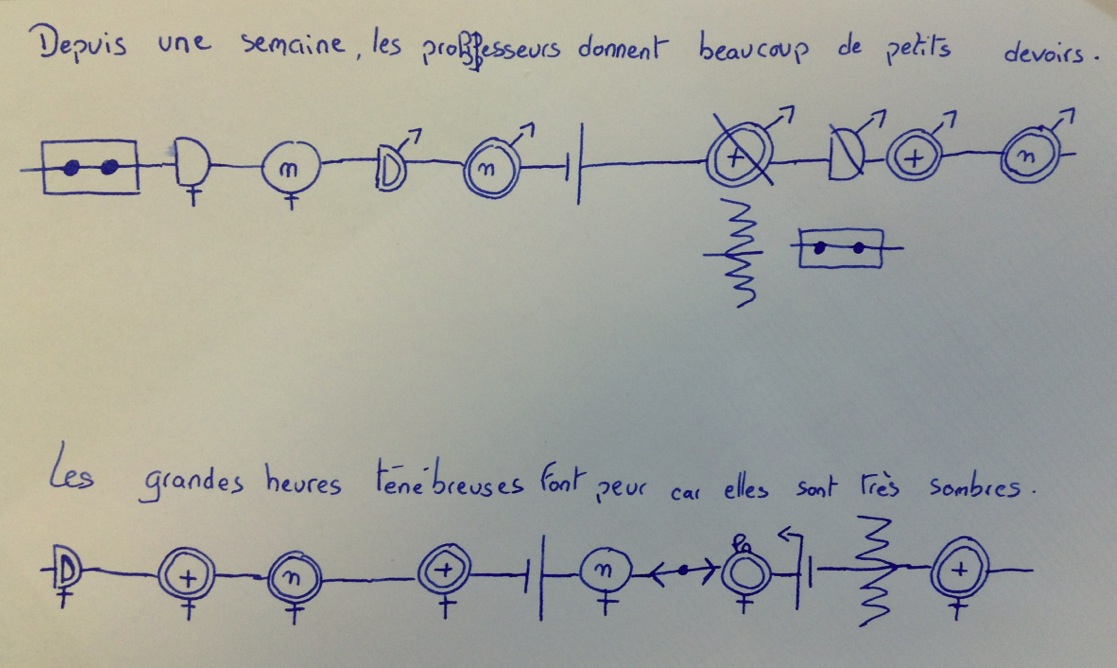 Depuis une semaine, les professeurs donnent beaucoup de petits devoirs.
n n + + n
Les grandes heures ténébreuses font peur car elles sont très sombres.
+ n + n Po +